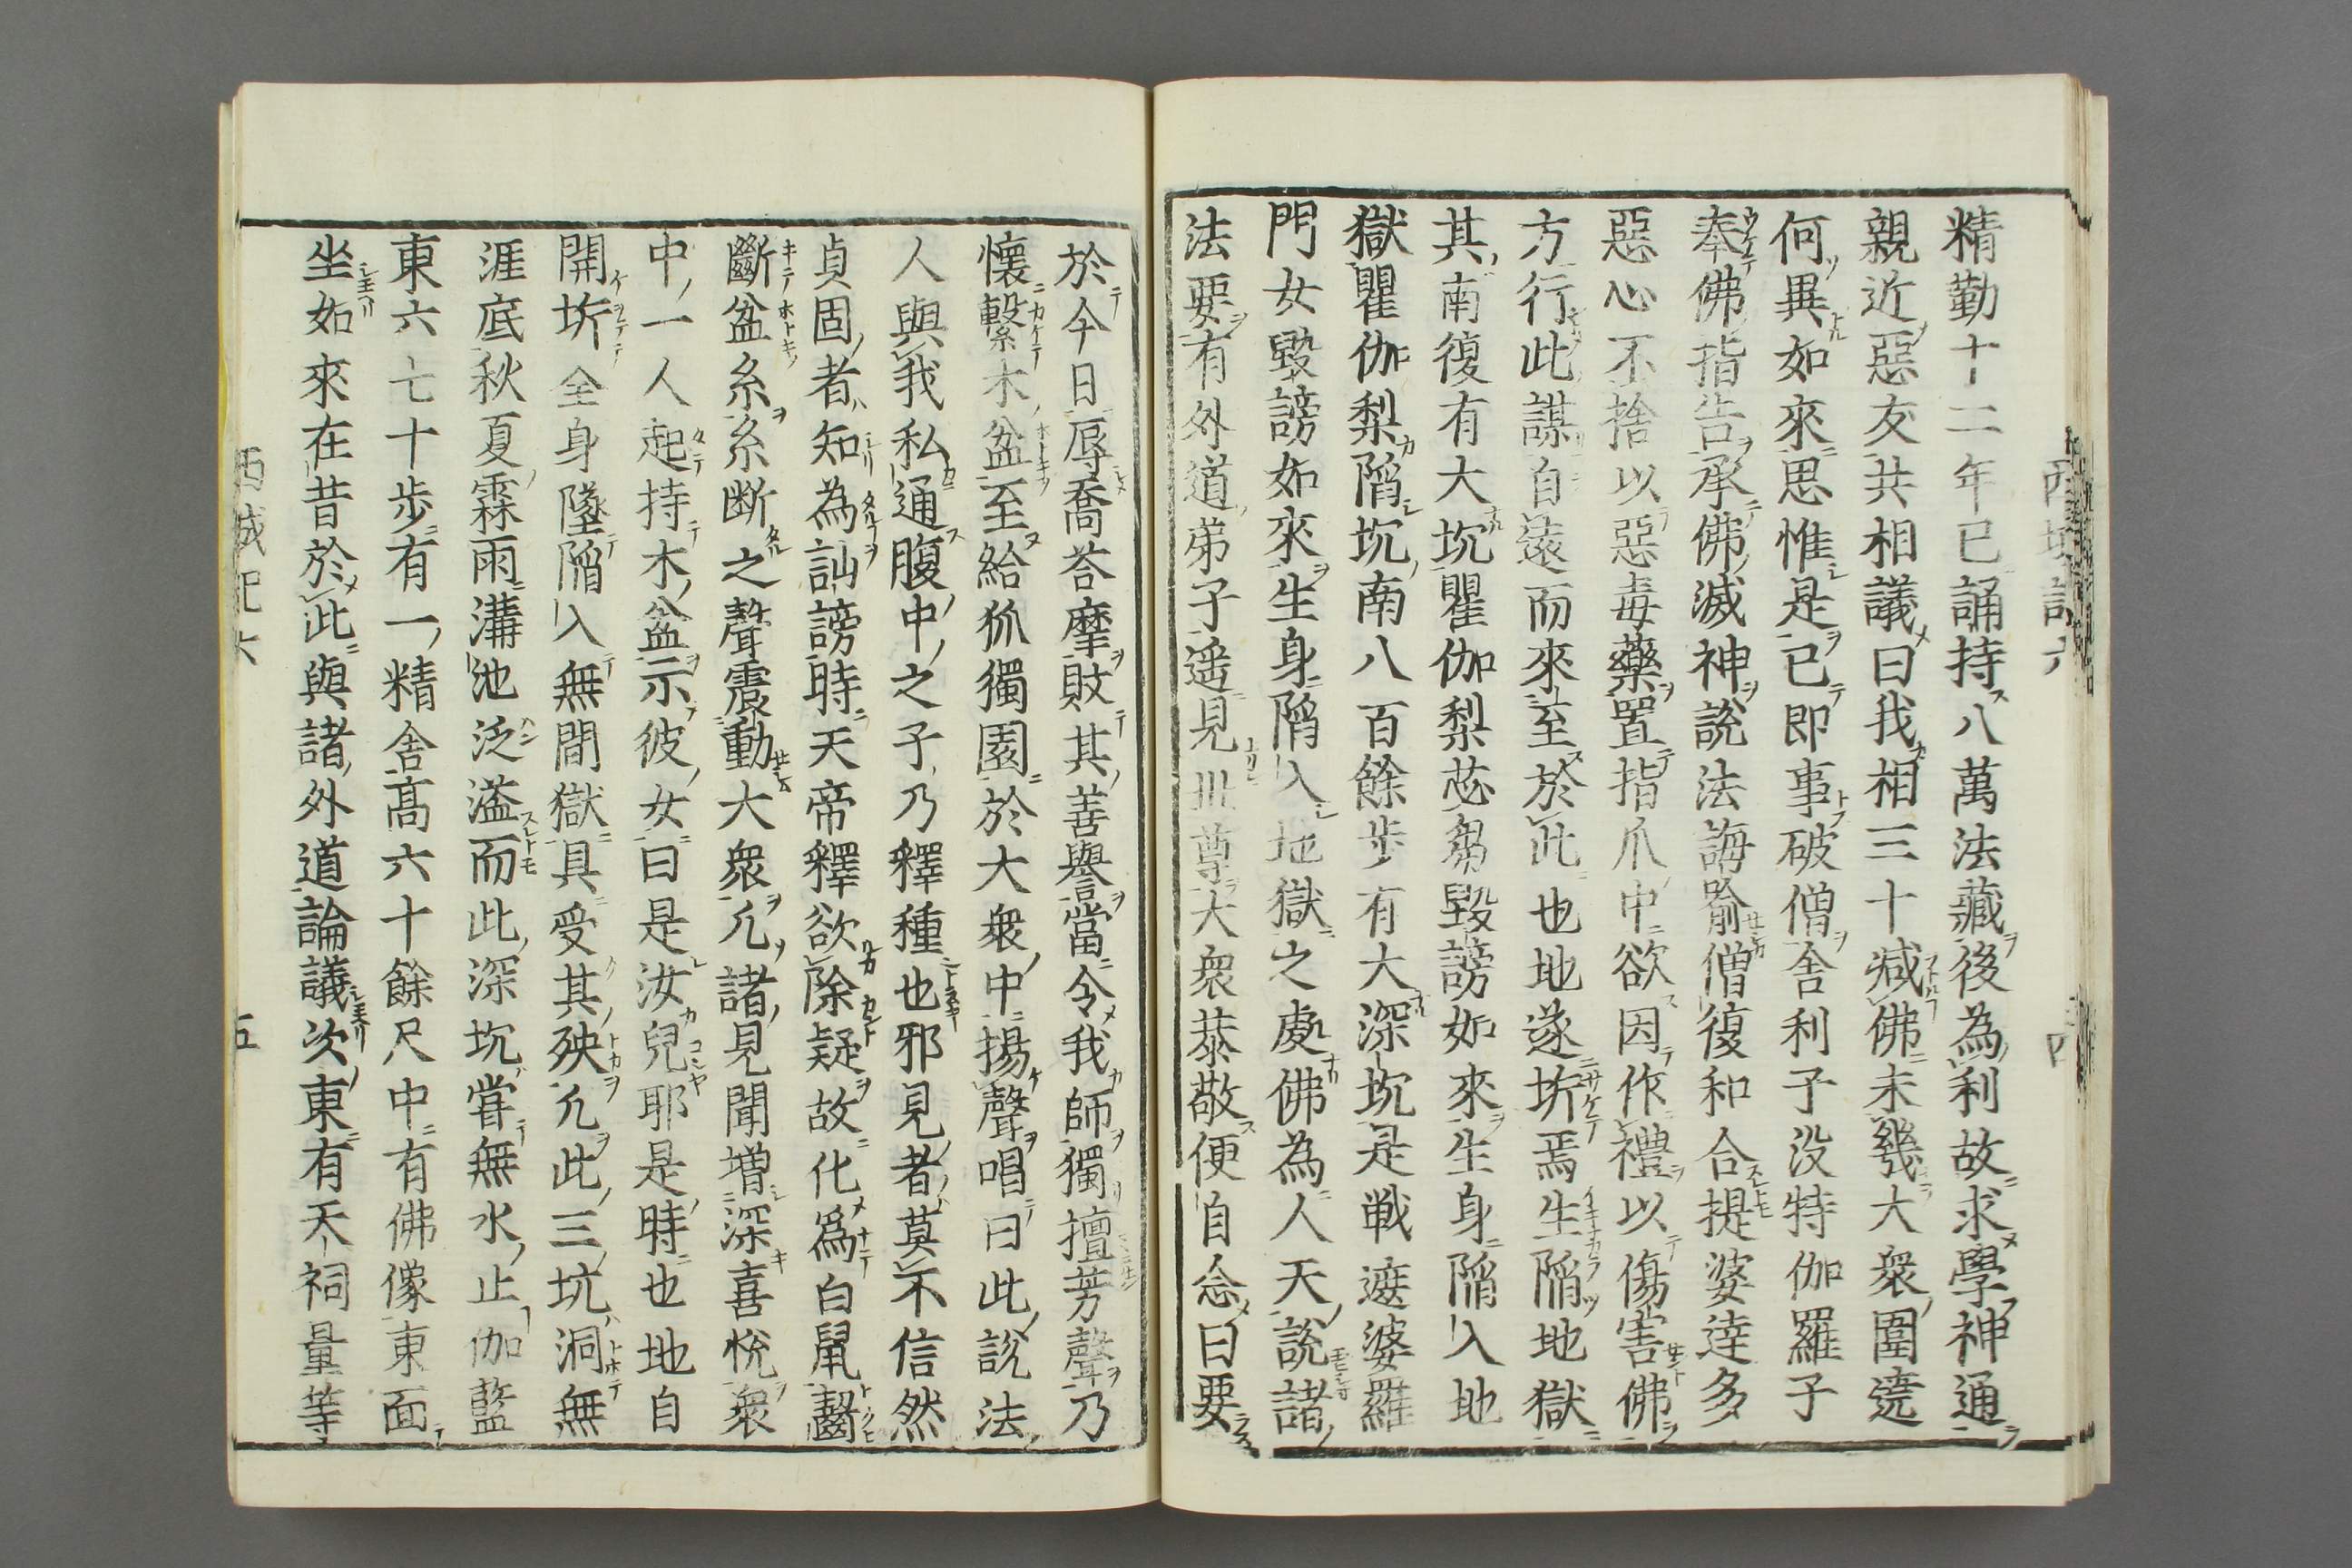 精勤十二年已誦持八萬法藏後為利故求學神通
親近惡友共相議曰我相三十減佛未幾大衆圍遶
何異如來思惟是已即事破僧舍利子没特伽羅子
奉佛指告承佛滅神說法誨喻僧復和合提婆達多
惡心不捨以惡毒藥置指爪中欲因作禮以傷害佛
方行此謀自遠而來至於此也地遂坼焉生陷地獄
其南復有大坑瞿伽梨苾芻毀謗如來生身陷入地
獄瞿伽梨陷坑南八百餘步有大深坑是戰遮婆羅
門女毀謗如來生身陷入地獄之處佛為人天說諸
法要有外道弟子遥見丗尊大衆恭敬便自念曰要
於今日辱喬荅摩敗其善譽當令我師獨擅芳聲乃
懷繫木盆至給孤獨園於大衆中揚聲唱曰此說法
人與我私通腹中之子乃釋種也邪見者莫不信然
貞固者知為訕謗時天帝釋欲除疑故化爲白鼠齧
斷盆糸糸断之聲震動大衆凢諸見聞增深喜悅衆
中一人起持木盆示彼女曰是汝兒耶是時也地自
開坼全身墜陷入無間獄具受其殃凢此三坑洞無
涯底秋夏霖雨溝池泛溢而此深坑嘗無水止伽藍
東六七十步有一精舍髙六十餘尺中有佛像東面
坐如來在昔於此與諸外道論議次東有天祠量等
西域記六
五